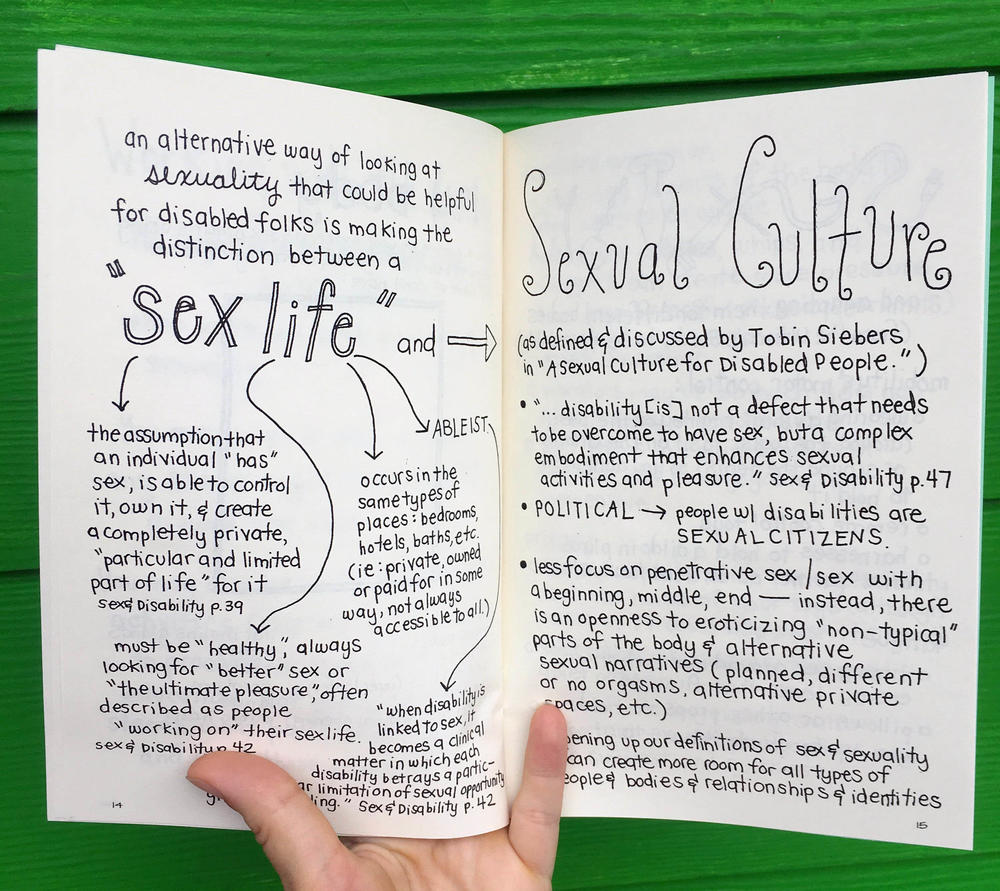 an alternative way of looking at
sexuality that could be helpful
for disabled folks is making the
distinction between a
"sex life" and →
the assumption that
an individual "has"
sex, is able to control
it, own it, & create
a completely private,
"particular and limited
part of life" for it
sex & Disability p.39
must be "healthy", always
looking for "better" sex or
"the ultimate pleasure" often
described as people
"working on" their sex life.
sex & Disability p. 42
occurs in the
same types of
places: bedrooms,
hotels, baths, etc.
(ie: private, owned
or paid for in some
way, not always
accessible to all.)
ABLEIST.
"when disability is
linked to sex, it
becomes a clinical
matter in which each
disability betrays a partic-
ar limitation of sexual opportunity
ling." Sex & Disability p. 42
14
Sexual Culture
(as defined & discussed by Tobin Siebers
in "A Sexual Culture for Disabled People.")
• "... disability [is] not a defect that needs
to be overcome to have sex, but a complex
embodiment that enhances sexual
activities and pleasure." sex & Disability p.47
• POLITICAL → people w/ disabilities are
SEXUAL CITIZENS.
• less focus on penetrative sex / sex with
a beginning, middle, end — instead, there
is an openness to eroticizing "non-typical"
parts of the body & alternative
sexual narratives (planned, different
or no orgasms, alternative private
spaces, etc.)
pening up our definitions of sex & sexuality
can create more room for all types of
eople & bodies & relationships & identities
15